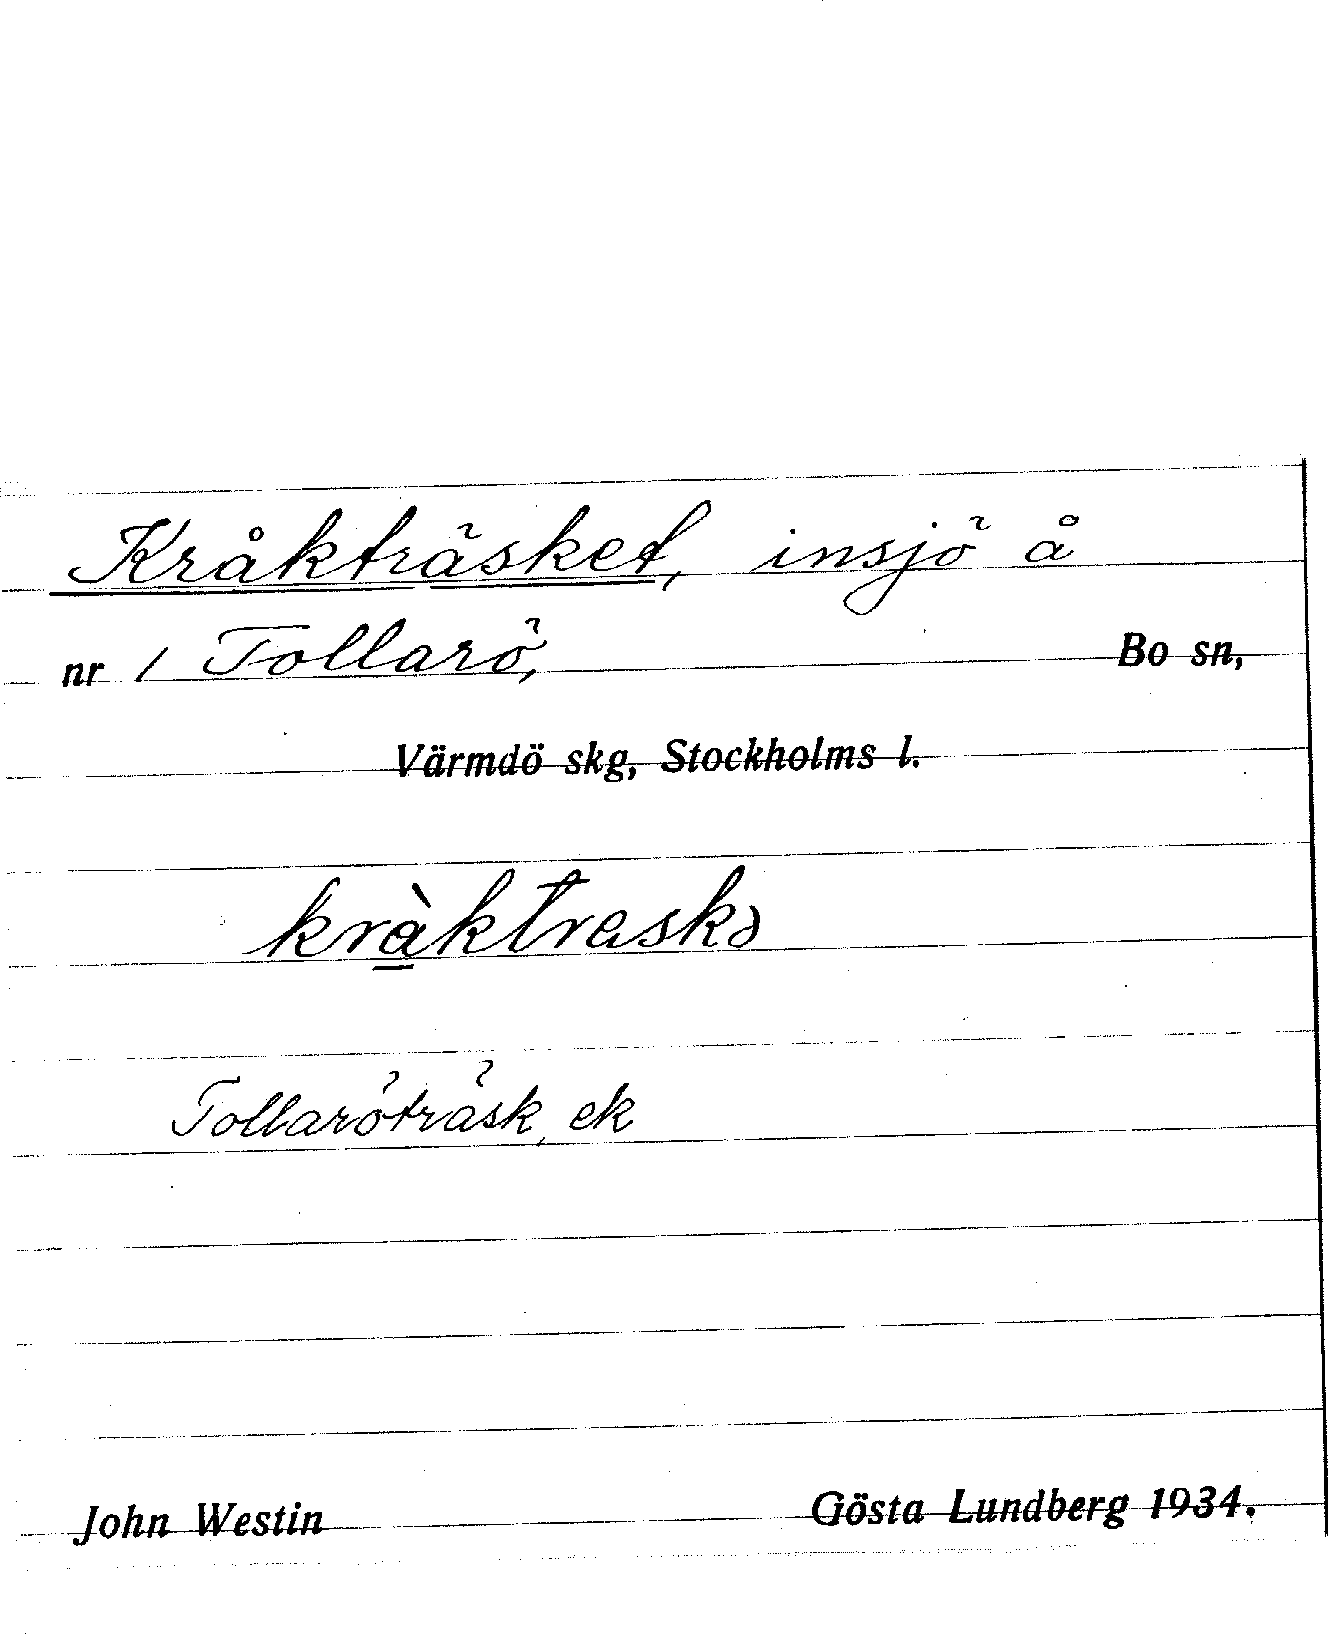 Kråkträsket, insjö å
nr 1 Tollarö, Bo sn,
Värmdö skg, Stockholms l.
kràktraskə
Tollaröträsk, ek
John Westin Gösta Lundberg 1934.